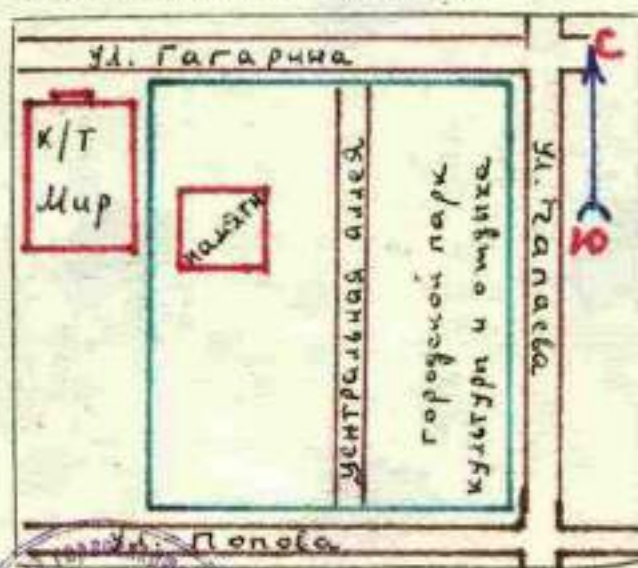 ул. Гагарина
С
К/Т
Мир
памятн
центральная аллея
городской парк
культуры и отдыха
ул. Чапаева
Ю
ул. Попова